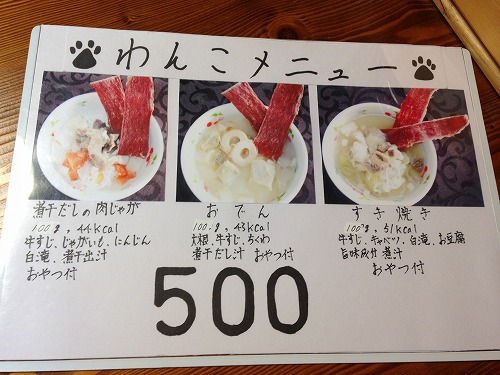 わんこメニュー
煮干だしの肉じゃが
100g, 44kcal
牛すじ、じゃがいも、にんじん
白滝、煮干出汁
おやつ付
おでん
100g, 43kcal
大根、牛すじ、ちくわ
煮干だし汁 おやつ付
すき焼き
100g, 51kcal
牛すじ、キャベツ、白滝、お豆腐
旨味成分煮汁
おやつ付
500